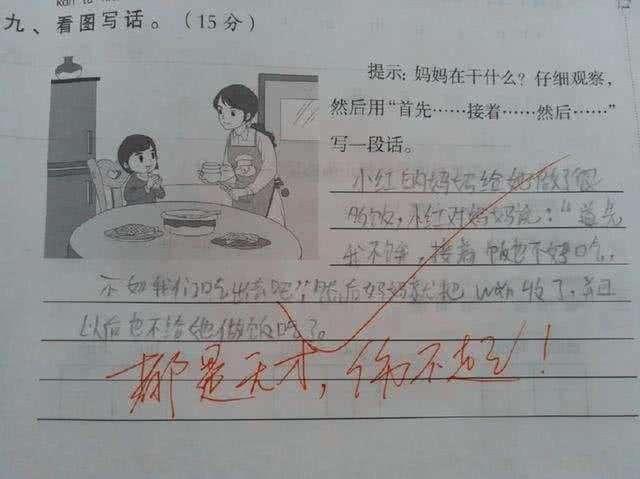 九、看图写话。（15分）
提示：妈妈在干什么？仔细观察，
然后用“首先……接着……然后……”
写一段话。
小红的妈妈给她做好
饭，小红对妈妈说：“首先
我不饿，接着饭也不好吃，
不如我们吃出去吧”，然后妈妈就把wǎn收了，并且
以后也不给她做饭吃了。
都是天才，伤不起！